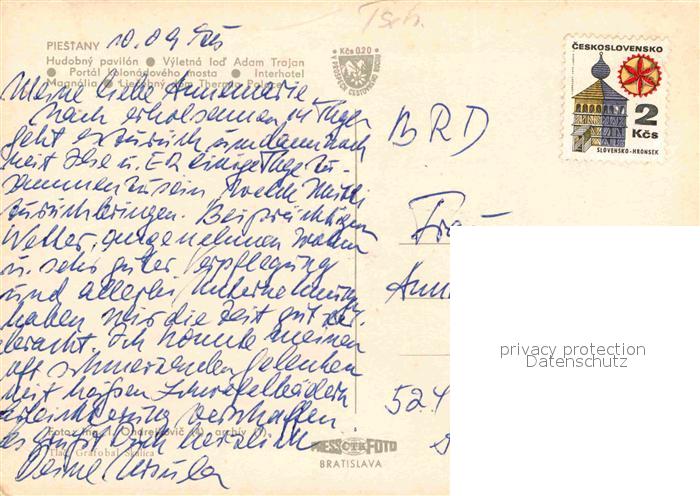 PIEŠŤANY
Hudobný pavilón ● Výletná loď Adam Trajan
● Portál Kolonádového mosta ● Interhotel
Magnólia ● Liečebný dom Thermia Palace
Kčs 0,20
ČESKOSLOVENSKO
2
Kčs
SLOVENSKO-HRONSEK
Meine liebe Annemarie
nach erholsamen Tagen
geht es zurück um dann noch
mit Ilse u. einige Tage zu-
sammen zu sein
zurückbringen. Bei prächtigem
Wetter, angenehmen
u. sehr guter Verpflegung
und allerlei Unternehmung
haben wir die Zeit gut
bracht. Ich konnte meinen
oft schmerzenden Gelenken
mit heißen Schwefelbädern
Erleichterung verschaffen.
Es grüßt Dich herzlich
Deine Ursula
BRD
Frau
524
Foto: Ing. I. Ondrejkovič (4), archív (1)
Tlač Grafobal Skalica
PRESSFOTO
ČTK
BRATISLAVA
privacy protection
Datenschutz